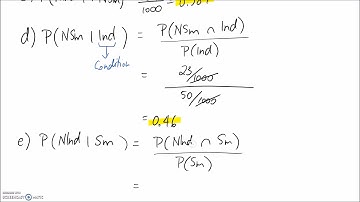 1000
d) P(NSm | Ind) = P(NSm ∩ Ind) / P(Ind)
Condition
= 23/1000 / 50/1000
= 0.46
e) P(NInd | Sm) = P(NInd ∩ Sm) / P(Sm)
=